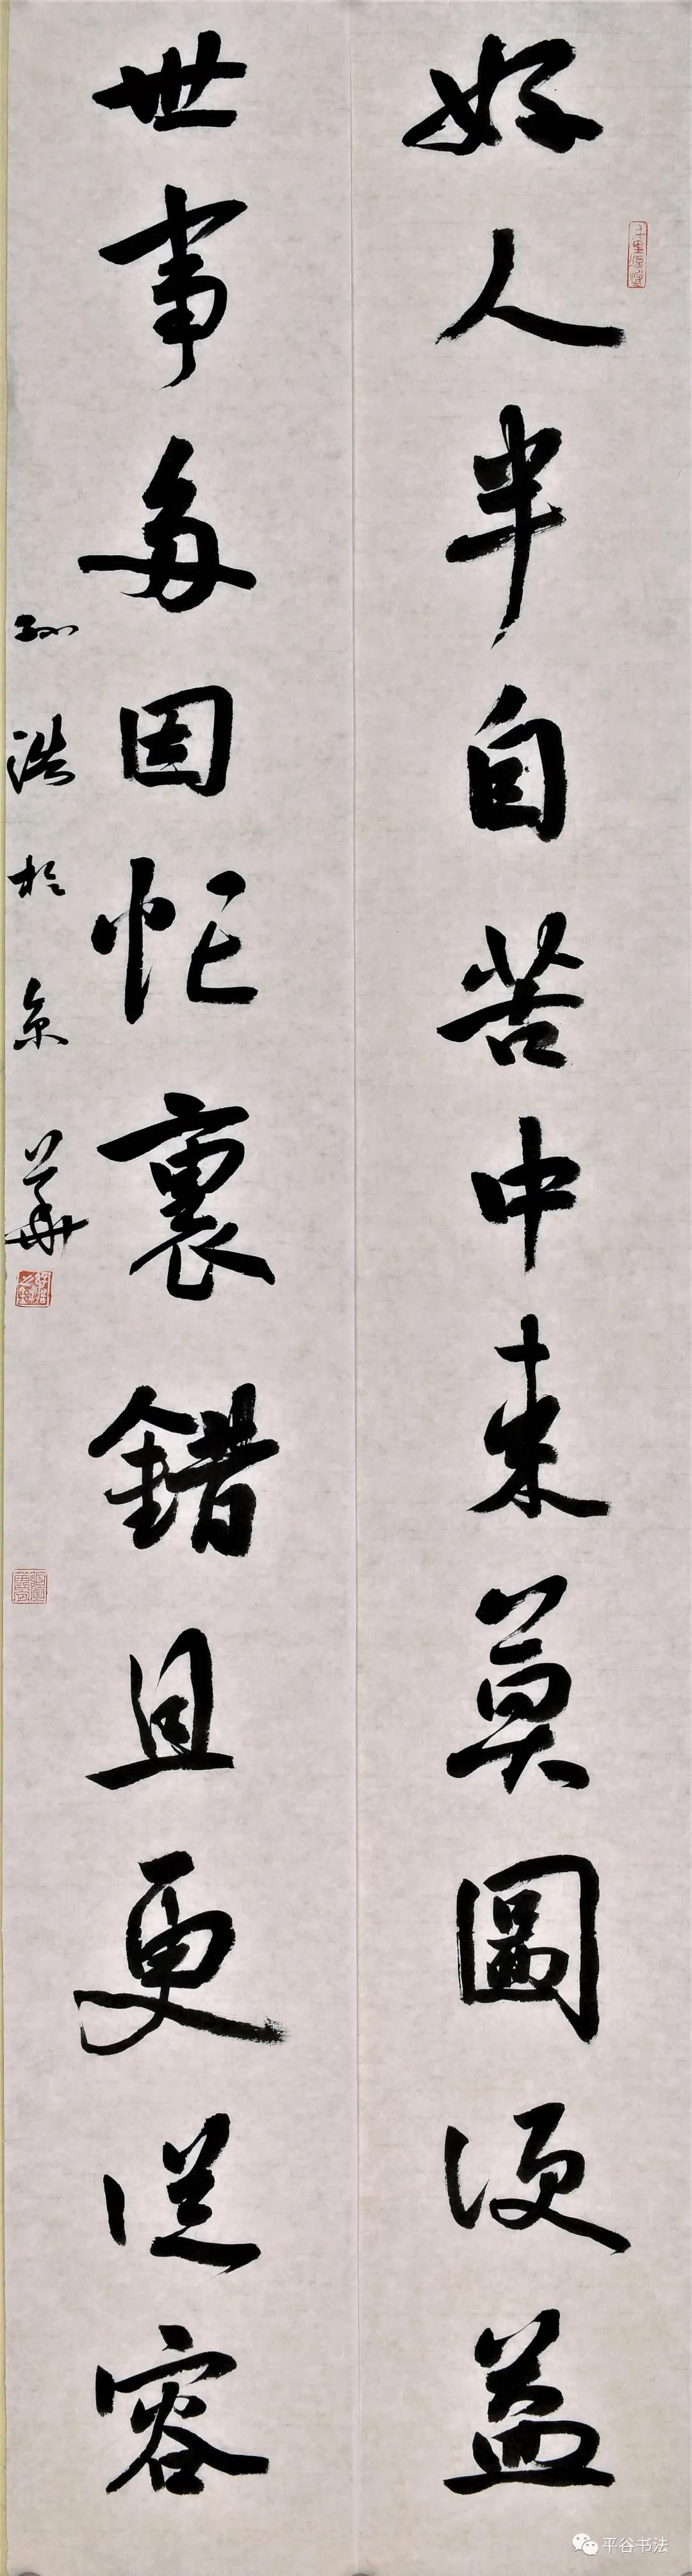 好人半自苦中来莫圖便益
世事多因忙裏錯且更從容
孙浩於京華
平谷书法